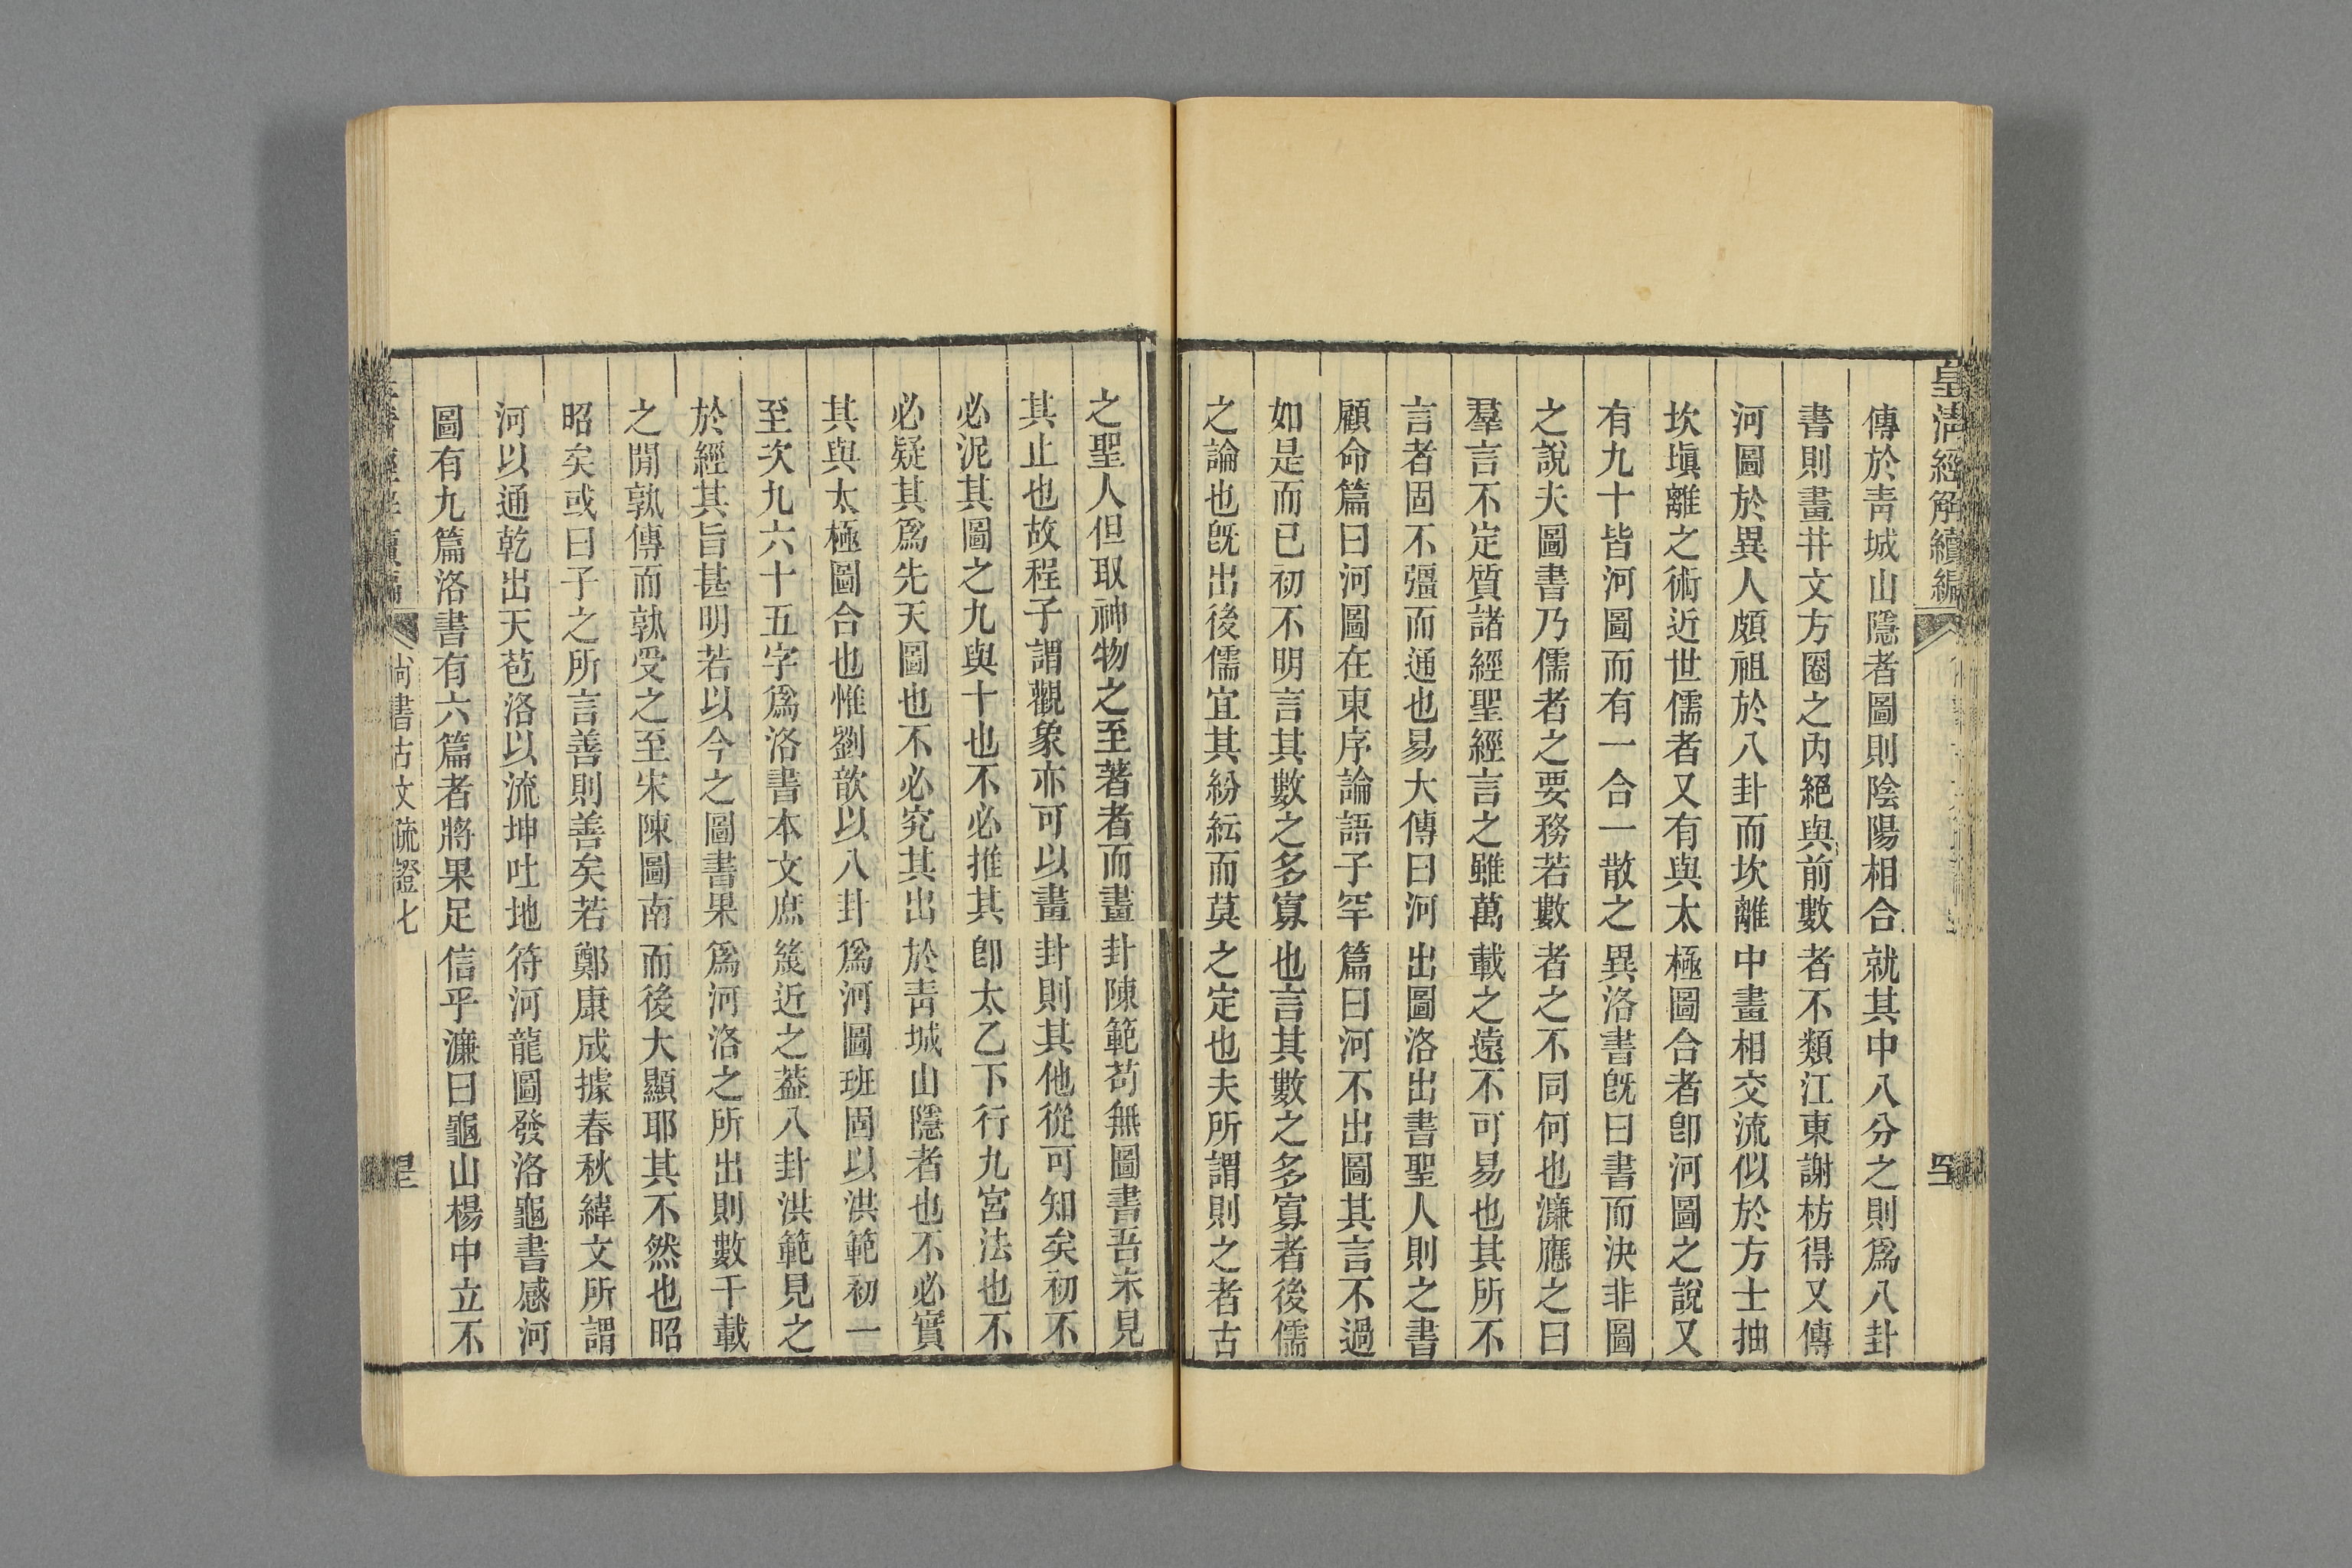 皇清經解續編
傳於靑城山隱者圖則陰陽相合就其中八分之則爲八卦
書則畫井文方圈之內絕與前數者不類江東謝枋得又傳
河圖於異人頗祖於八卦而坎離中畫相交流似於方士抽
坎塡離之術近世儒者又有與太極圖合者卽河圖之說又
有九十皆河圖而有一合一散之異洛書旣曰書而決非圖
之說夫圖書乃儒者之要務若數者之不同何也濂應之曰
羣言不定質諸經聖經言之雖萬載之遠不可易也其所不
言者固不彊而通也易大傳曰河出圖洛出書聖人則之書
顧命篇曰河圖在東序論語子罕篇曰河不出圖其言不過
如是而已初不明言其數之多寡也言其數之多寡者後儒
之論也旣出後儒宜其紛紜而莫之定也夫所謂則之者古
之聖人但取神物之至著者而畫卦陳範苟無圖書吾未見
其止也故程子謂觀象亦可以畫卦則其他從可知矣初不
必泥其圖之九與十也不必推其卽太乙下行九宮法也不
必疑其爲先天圖也不必究其出於靑城山隱者也不必實
其與太極圖合也惟劉歆以八卦爲河圖班固以洪範初一
至次九六十五字爲洛書本文庶幾近之葢八卦洪範見之
於經其旨甚明若以今之圖書果爲河洛之所出則數千載
之閒孰傳而孰受之至宋陳圖南而後大顯耶其不然也昭
昭矣或曰子之所言善則善矣若鄭康成據春秋緯文所謂
河以通乾出天苞洛以流坤吐地符河龍圖發洛龜書感河
圖有九篇洛書有六篇者將果足信乎濂曰龜山楊中立不
尙書古文疏證七